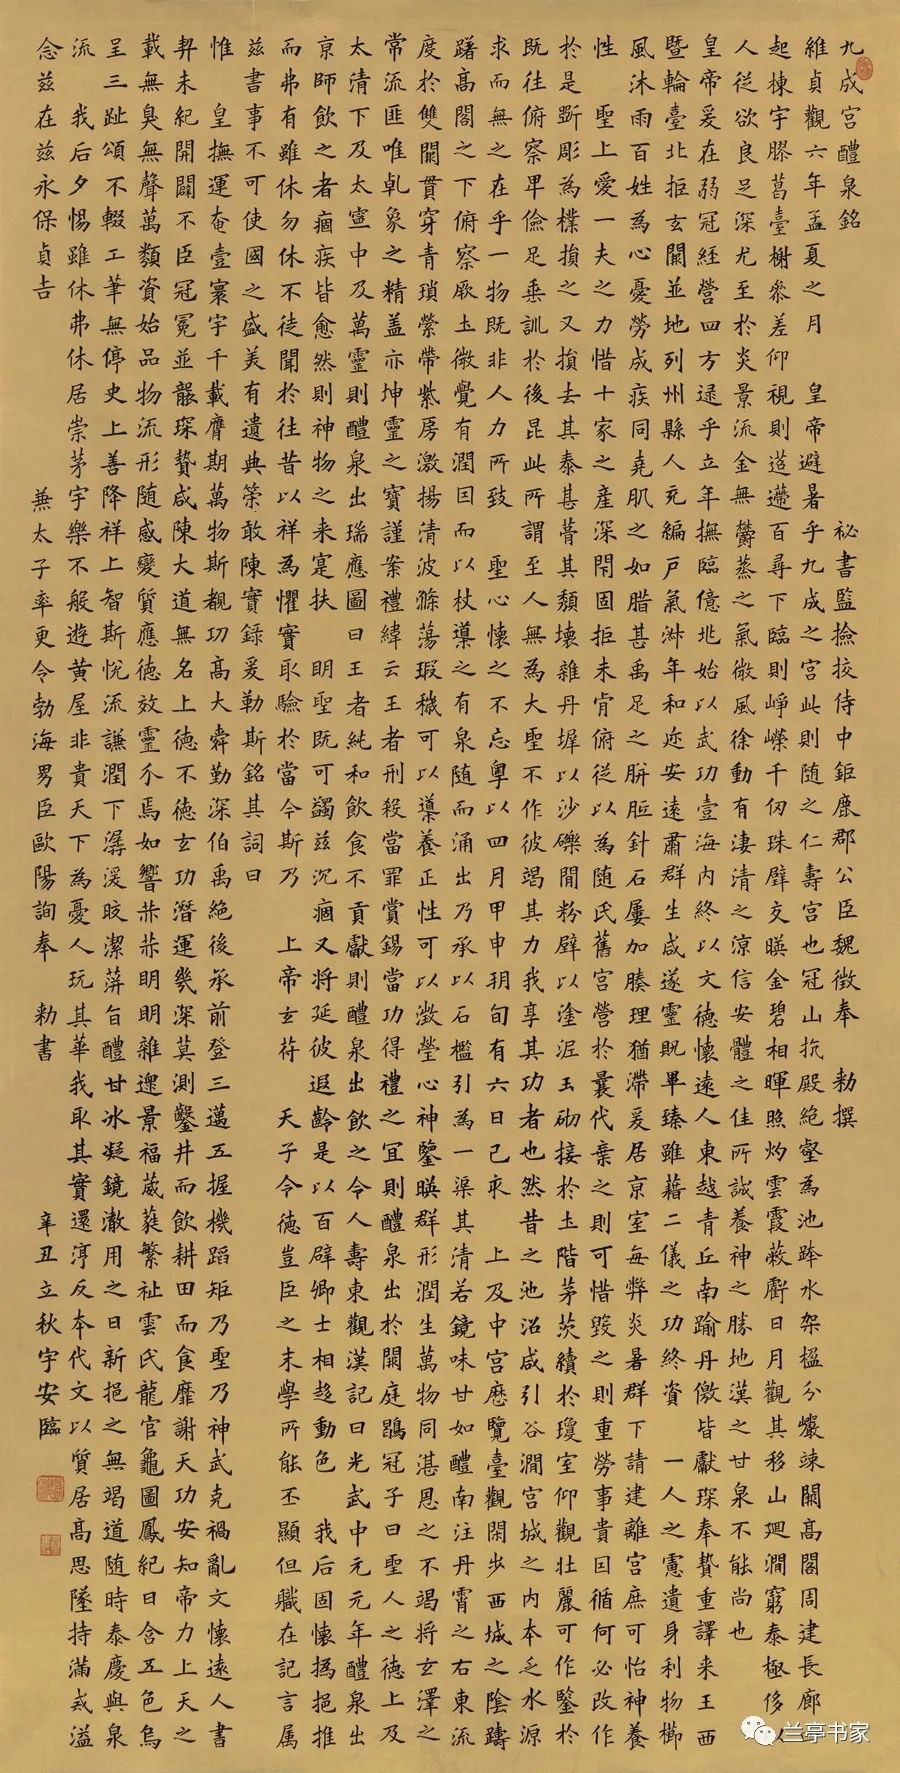 九成宫醴泉銘 祕書監撿挍侍中鉅鹿郡公臣魏徵奉 勅撰
維貞觀六年孟夏之月 皇帝避暑乎九成之宮此則随之仁壽宮也冠山抗殿絶壑為池跨水架楹分巖竦闕高閣周建長廊
起棟宇膠葛臺榭叅差仰視則迢遰百尋下臨則崢嶸千仞珠壁交暎金碧相暉照灼雲霞蔽虧日月觀其移山廻澗窮泰極侈
人從欲良足深尤至於炎景流金無欝蒸之氣微風徐動有淒清之涼信安體之佳所誠養神之勝地漢之甘泉不能尚也
皇帝爰在弱冠經營四方逮乎立年撫臨億兆始以武功壹海内終以文德懷遠人東越青丘南踰丹儌皆獻琛奉贄重譯来王西
暨輪臺北拒玄闕並地列州縣人充編戶氣淑年和迩安遠肅群生咸遂靈貺畢臻雖藉二儀之功終資 一人之慮遺身利物櫛
風沐雨百姓為心憂勞成疾同堯肌之如腊甚禹足之胼胝針石屢加腠理猶滯爰居京室每弊炎暑群下請建離宮庶可怡神養
性 聖上愛一夫之力惜十家之產深閇固拒未肯俯從以為随氏舊宮營於曩代棄之則可惜毀之則重勞事貴因循何必改作
於是斲彫為樸損之又損去其泰甚葺其頹壞雜丹墀以沙礫間粉壁以塗泥玉砌接於土階茅茨續於瓊室仰觀壯麗可作鑒於
既往俯察卑儉足垂訓於後昆此所謂至人無為大聖不作彼竭其力我享其功者也然昔之池沼咸引谷澗宮城之内本乏水源
求而無之在乎一物既非人力所致 聖心懷之不忘粵以四月甲申朔旬有六日己亥 上及中宮歷覽臺觀閑步西城之陰躊
躇高閣之下俯察厥土微覺有潤因而以杖導之有泉随而涌出乃承以石檻引為一渠其清若鏡味甘如醴南注丹霄之右東流
度於雙闕貫穿青瑣縈帶紫房激揚清波滌蕩瑕穢可以導養正性可以澂瑩心神鑒暎群形潤生萬物同湛恩之不竭將玄澤之
常流匪唯乹象之精盖亦坤靈之寶謹案禮緯云王者刑殺當罪賞錫當功得禮之宜則醴泉出於闕庭鶡冠子曰聖人之德上及
太清下及太寧中及萬靈則醴泉出瑞應圖曰王者純和飲食不貢獻則醴泉出飲之令人壽東觀漢記曰光武中元元年醴泉出
京師飲之者痼疾皆愈然則神物之来寔扶 明聖既可蠲兹沉痼又將延彼遐齡是以百辟卿士相趍動色 我后固懷撝挹推
而弗有雖休勿休不徒聞於往昔以祥為懼實取驗於當今斯乃 上帝玄符 天子令德豈臣之末學所能丕顯但職在記言属
兹書事不可使國之盛美有遺典策敢陳實録爰勒斯銘其詞曰
惟 皇撫運奄壹寰宇千載膺期萬物斯覩功高大舜勤深伯禹絶後承前登三邁五握機蹈矩乃聖乃神武克禍亂文懷遠人書
契未紀開闢不臣冠冕並襲琛贄咸陳大道無名上德不德玄功潛運幾深莫測鑿井而飲耕田而食靡謝天功安知帝力上天之
載無臭無聲萬類資始品物流形随感變質應德效靈介焉如響赫赫明明雜遝景福葳蕤繁祉雲氏龍官龜圖鳳紀日含五色烏
呈三趾頌不輟工筆無停史上善降祥上智斯悅流謙潤下潺湲皎潔蓱旨醴甘冰凝鏡澈用之日新挹之無竭道随時泰慶與泉
流 我后夕惕雖休弗休居崇茅宇樂不般遊黃屋非貴天下為憂人玩其華我取其實還淳反本代文以質居高思墜持滿戒溢
念兹在兹永保貞吉 兼太子率更令勃海男臣歐陽詢奉 勅書 辛丑立秋宇安臨
兰亭书家